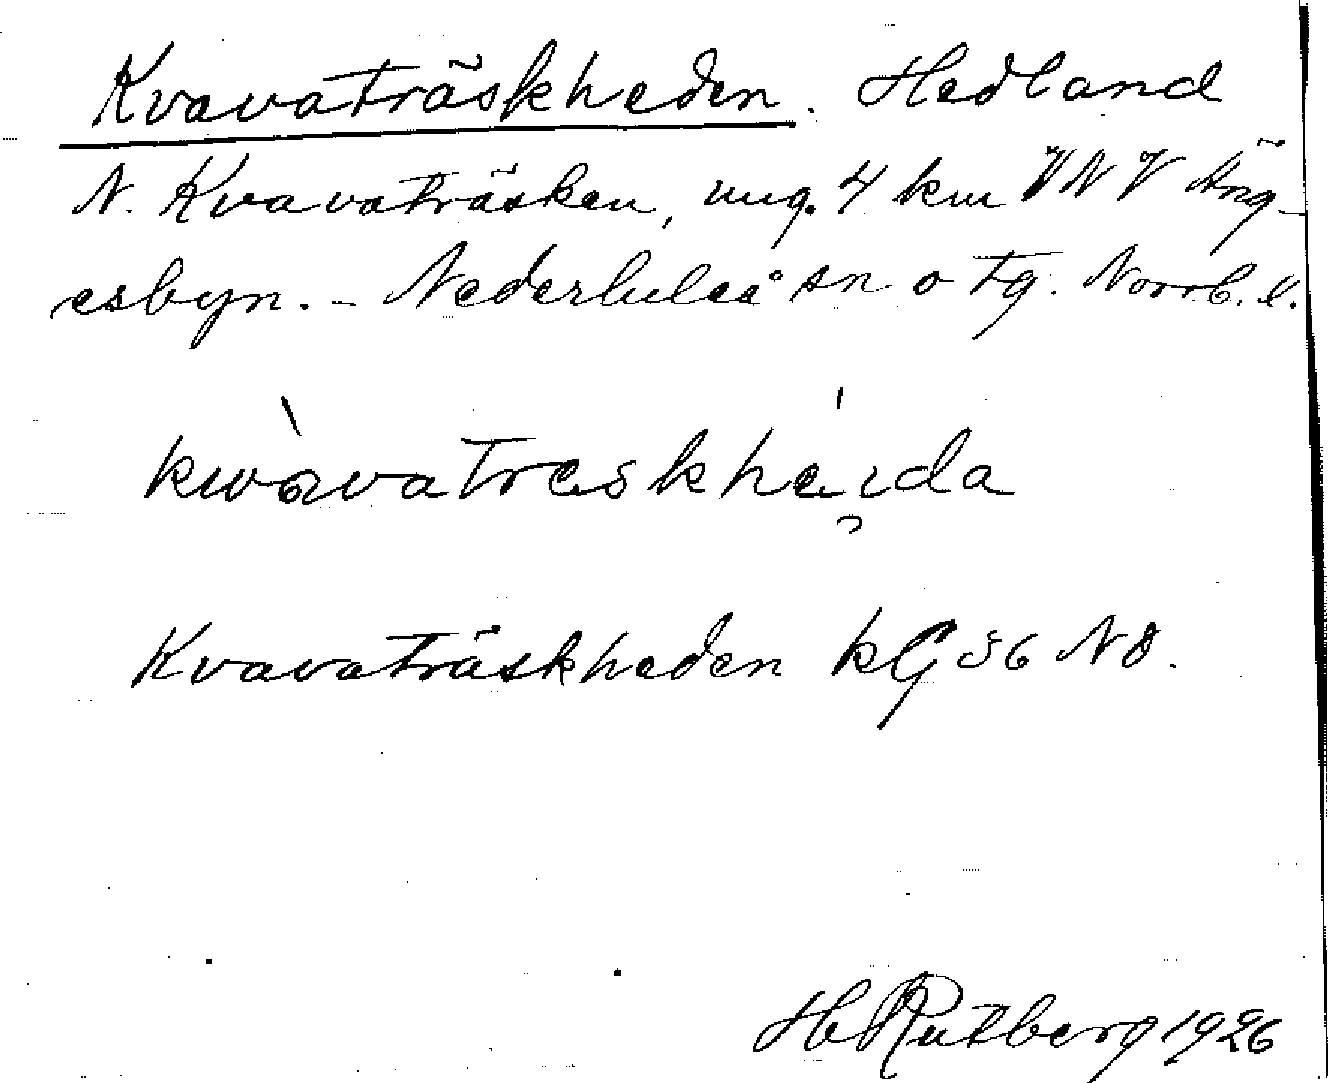 Kvavaträskheden. Hedland
N. Kvavaträsken, ung. 4 km VNV Äng-
esbyn. - Nederluleå sn o tg. Norrb. l.
kwàvatreskhéida
Kvavaträskheden kG 36 NO.
H Rutberg 1926